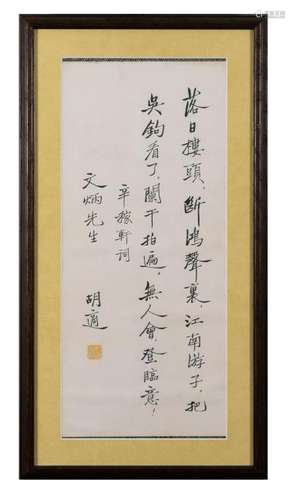 落日樓頭，斷鴻聲裏，江南游子．把
吳鉤看了，闌干拍遍，無人會，登臨意！
辛稼軒詞
文炳先生
胡適